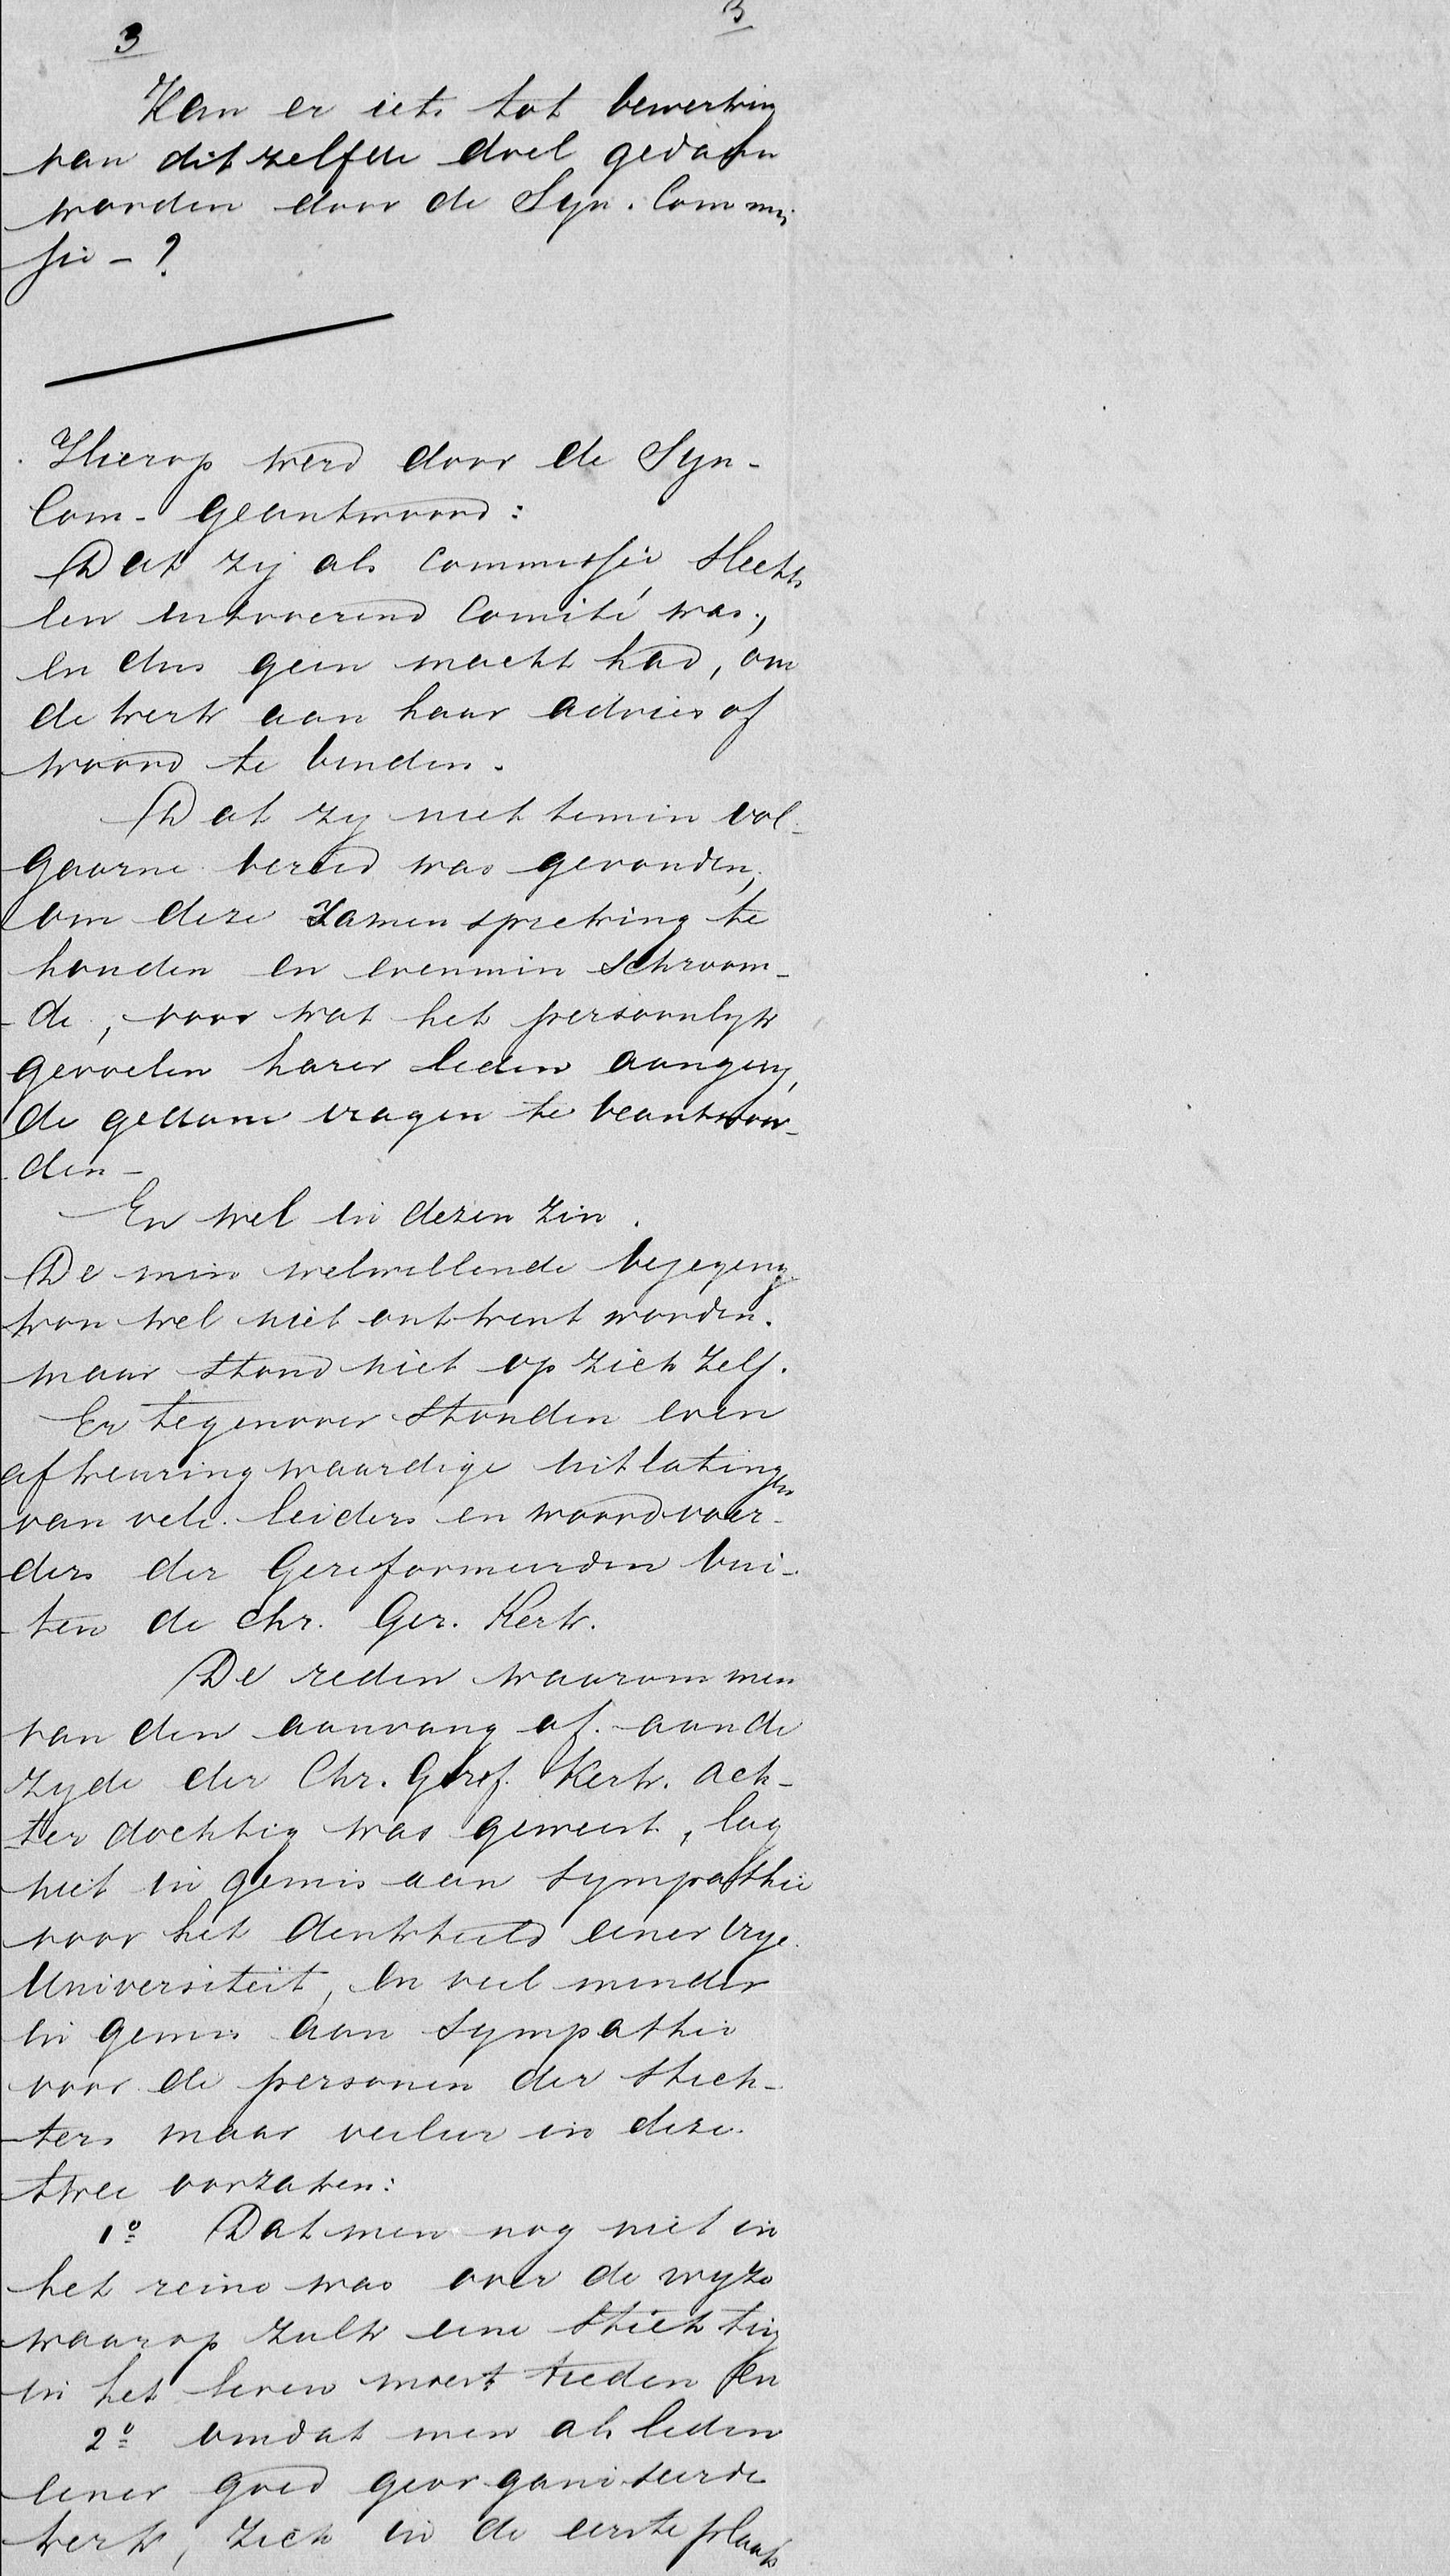 3 3
Kan er iets tot bewerking
van ditzelfde doel gedaan
worden door de Syn. Commis
sie - ?
Hierop werd door de Syn-
Com- geantwoord:
Dat zij als Commissie, slechts
een uitvoerend Comité was,
en dus geen macht had, om
de kerk aan haar advies of
woord te binden.
Dat zy niet temin vol-
gaarne bereid was gevonden,
om deze Zamenspreking te
houden en evenmin schroom-
de, voor wat het persoonlyk
gevoelen harer leden aanging,
de gedane vragen te beantwoor-
den -
En wel in dezen zin.
De min welwillende bejegening
kon wel niet ontkent worden.
maar stond niet op zich zelf.
Er tegenover stonden even
afkeuringwaardige uitlatingen
van vele leiders en woordvoer-
ders der Gereformeerden bui-
ten de Chr. Ger. Kerk.
De reden waarom men
van den aanvang af aan de
zyde der Chr. Geref. Kerk. ach-
ter dochtig was geweest, lag
niet in gemis aan Sympathie
voor het denkbeeld einer vrye
Universiteit, en veel minder
in gemis aan Sympathie
voor de personen der stich-
ters maar veeleer in deze
twee oorzaken:
1o Dat men nog niet in
het reine was over de wyze
waarop zulk eene Stichting
in het leven moest treden en
2o omdat men als leden
eener goed georganiseerde
kerk, zich in de eerste plaats